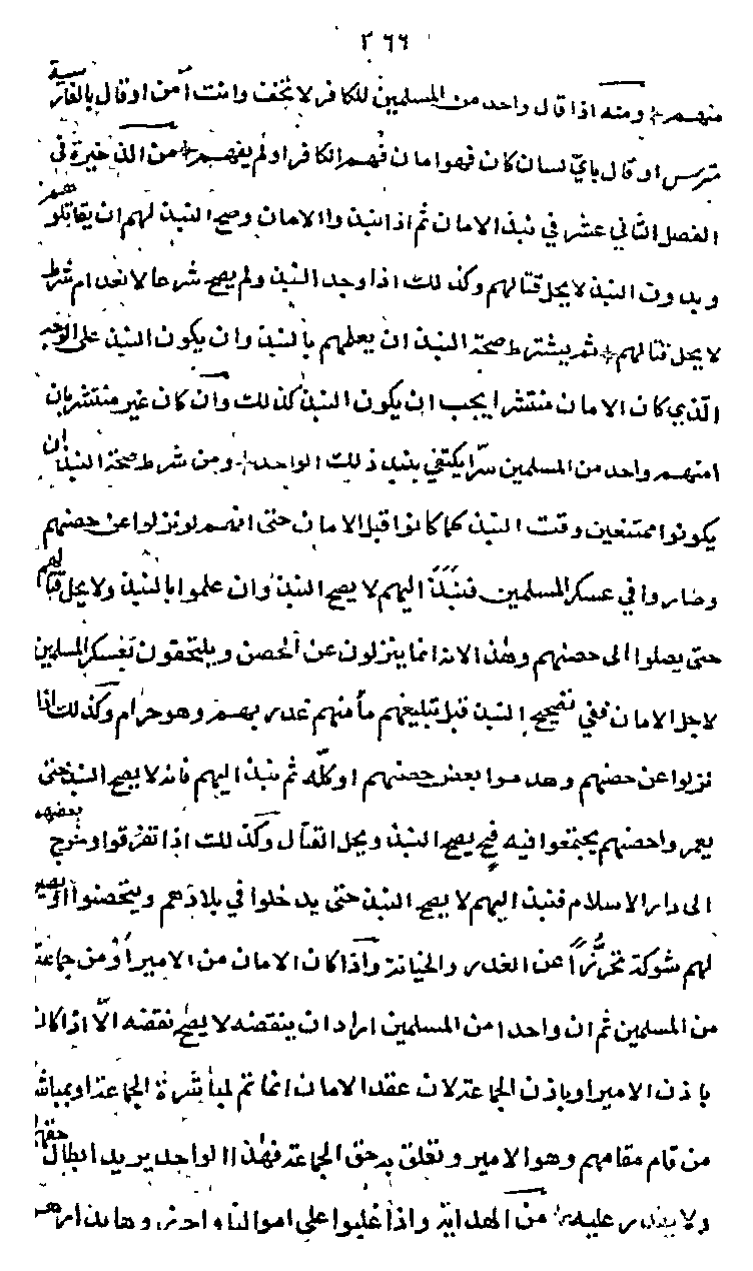 ٣٦٦
منهم ومنه اذا قال واحد من المسلمين للكافر لا تخف وانت آمن او قال بالفارسية
مترس او قال باي لسان كان فهو امان فهم الكافر او لم يفهم من الذخيرة في
الفصل الثاني عشر في نبذ الامان ثم اذا نبذوا الامان وصح النبذ لهم ان يقاتلوهم
وبدون النبذ لا يحل قتالهم وكذلك اذا وجد النبذ ولم يصح شرعا لانعدام شرط
لا يحل قتالهم ثم يشترط صحة النبذ ان يعلمهم بالنبذ وان يكون النبذ على الوجه
الذي كان الامان منتشرا يجب ان يكون النبذ كذلك وان كان غير منتشر بان
امنهم واحد من المسلمين سرا يكتفي بنبذ ذلك الواحد ومن شرط صحة النبذ ان
يكونوا ممتنعين وقت النبذ كما كانوا قبل الامان حتى انهم لو نزلوا عن حصنهم
وصاروا في عسكر المسلمين فنبذ اليهم لا يصح النبذ وان علموا بالنبذ ولا يحل قتالهم
حتى يصلوا الى حصنهم وهذا لانه انما ينزلون عن الحصن ويلتحقون بعسكر المسلمين
لاجل الامان ففي تصحيح النبذ قبل تبليغهم مأمنهم غدر بهم وهو حرام وكذلك اذا
نزلوا عن حصنهم وهدموا بعض حصنهم او كله ثم نبذ اليهم فانه لا يصح النبذ حتى
يعمروا حصنهم يجتمعوا فيه فح يصح النبذ ويحل القتال وكذلك اذا تفرقوا وخرج بعضهم
الى دار الاسلام فنبذ اليهم لا يصح النبذ حتى يدخلوا في بلادهم ويتحصنوا او يصير
لهم شوكة تحرزا عن الغدر والخيانة واذا كان الامان من الامير او من جماعة
من المسلمين ثم ان واحدا من المسلمين اراد ان ينقضه لا يصح نقضه الا اذا كان
باذن الامير او باذن الجماعة لان عقد الامان انما تم لمباشرة الجماعة او بمباشرة
من قام مقامهم وهو الامير وتعلق به حق الجماعة فهذا الواحد يريد ابطال حقهم
ولا يقدر عليه من الهداية واذا غلبوا على اموالنا واحرزوها بدارهم